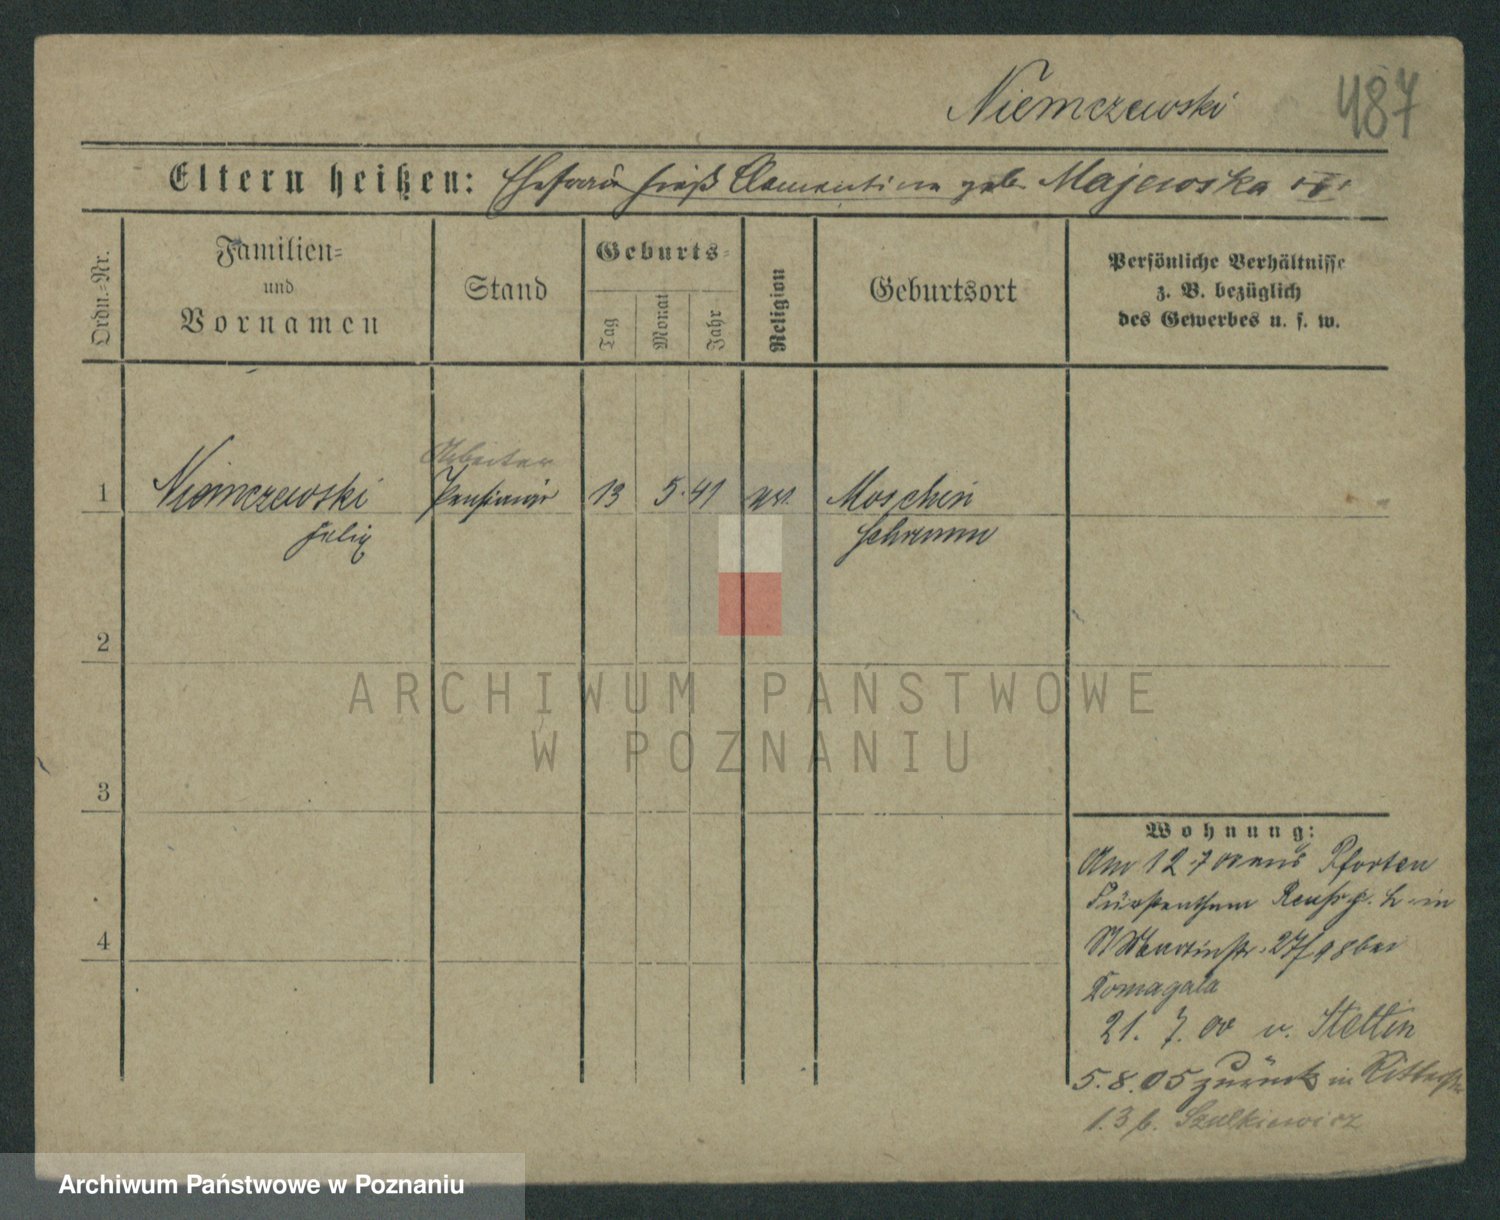 Niemczewski
487
Eltern heißen: Ehefrau hieß Clementine geb. Majewska
Ordn.-Nr.
Familien-
und
Vornamen
Stand
Geburts-
Tag
Monat
Jahr
Religion
Geburtsort
Persönliche Verhältnisse
z. B. bezüglich
des Gewerbes u. s. w.
Arbeiter
1 Niemczewski Pensionär 13 5. 41 Moschin
Felix Schrimm
2
3
4
Wohnung:
Am 12.7.00 aus Pforten
Fürstenthum in
Martinstr. 27/ 98 bei
Tomagala
21. 7. 00 v. Stettin
5. 8. 05 zurück in Ritterstr
13 b. Szulkiewicz
ARCHIWUM PAŃSTWOWE
W POZNANIU
Archiwum Państwowe w Poznaniu